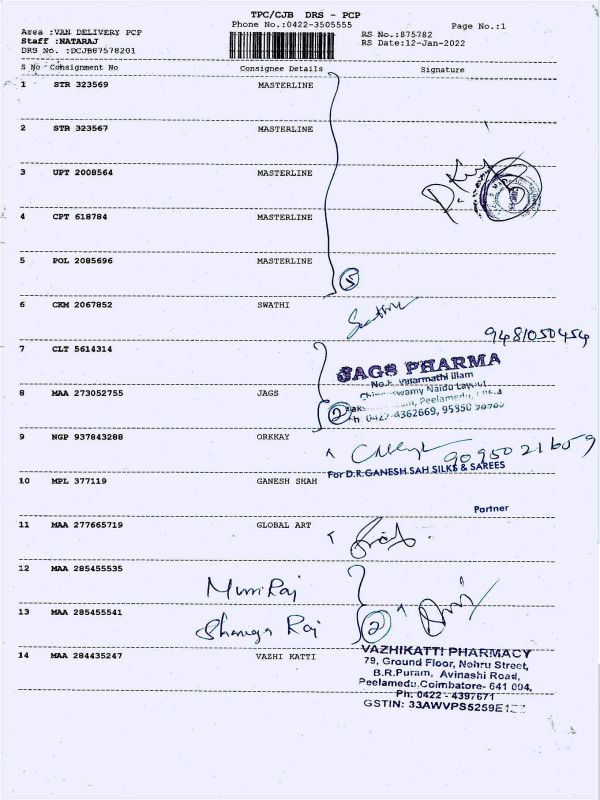 TPC/CJB DRS - PCP
Phone No.:0422-3505555
Page No.:1
Area :VAN DELIVERY PCP
Staff :NATARAJ
DRS No. :DCJB87578201
RS No.:875782
RS Date:12-Jan-2022
S No Consignment No Consignee Details Signature
1 STR 323569 MASTERLINE
2 STR 323567 MASTERLINE
3 UPT 2008564 MASTERLINE
4 CPT 618784 MASTERLINE
5 POL 2085696 MASTERLINE
5
6 CKM 2067852 SWATHI
Swathi
9481050454
7 CLT 5614314
JAGS PHARMA
illam
Naidu Layout
8 MAA 273052755 JAGS
Peelamedu,
2
4362669,
9 NGP 937843288 ORKKAY
9095021659
For D.R.GANESH SAH SILKS & SAREES
10 MPL 377119 GANESH SHAH
Partner
11 MAA 277665719 GLOBAL ART
12 MAA 285455535
Muni Raj
13 MAA 285455541
Raj
2
14 MAA 284435247 VAZHI KATTI
VAZHIKATTI PHARMACY
79, Ground Floor, Nehru Street,
B.R.Puram, Avinashi Road,
Peelamedu,Coimbatore- 641 004,
Ph: 0422 - 4397671
GSTIN: